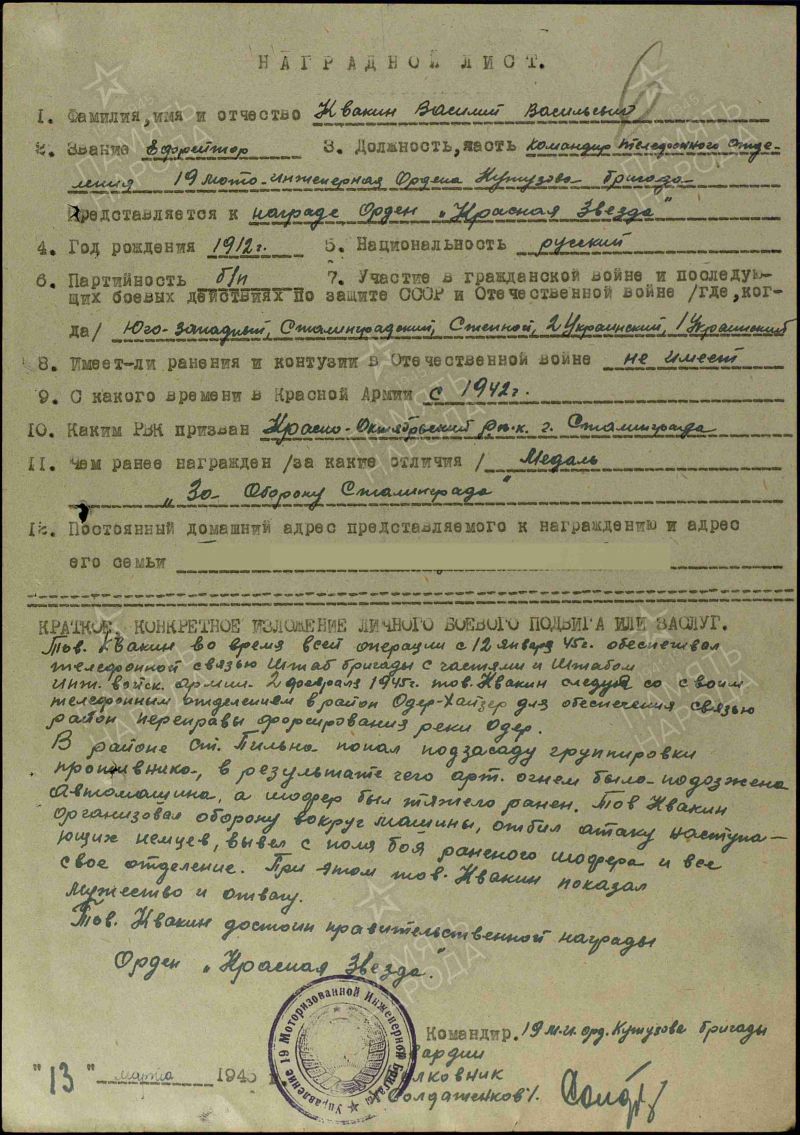 НАГРАДНОЙ ЛИСТ.
1. Фамилия, имя и отчество Квакин Василий Васильевич
2. Звание Ефрейтор 3. Должность, часть Командир телефонного отде-
ления 19 мото-инженерная Ордена Кутузова бригада
Представляется к награде Орден „Красная Звезда"
4. Год рождения 1912 г. 5. Национальность русский
6. Партийность б/п 7. Участие в гражданской войне и последую-
щих боевых действиях по защите СССР и Отечественной войне /где, ког-
да/ Юго-Западный, Сталинградский, Степной, 2 Украинский, 1 Украинский
8. Имеет-ли ранения и контузии в Отечественной войне не имеет
9. С какого времени в Красной Армии с 1942 г.
10. Каким РВК призван Красно-Октябрьский р.в.к. г. Сталинграда
11. Чем ранее награжден /за какие отличия/ Медаль
„За Оборону Сталинграда"
12. Постоянный домашний адрес представляемого к награждению и адрес
его семьи
КРАТКОЕ, КОНКРЕТНОЕ ИЗЛОЖЕНИЕ ЛИЧНОГО БОЕВОГО ПОДВИГА ИЛИ ЗАСЛУГ.
Тов. Квакин во время всей операции с 12 января 45 г. обеспечивал
телефонной связью Штаб бригады с частями и Штабом
инж. войск. армии. 2 февраля 1945 г. тов. Квакин следуя со своим
телефонным отделением в район Одер-Хайзер для обеспечения связью
район переправы форсирования реки Одер.
В районе Ст. Пильна попал подзасаду группировки
противника, в результате чего арт. огнем была подозжена
Автомашина, а шофер был тяжело ранен. Тов Квакин
организовал оборону вокруг машины, отбил атаку наступа-
ющих немцев, вывел с поля боя раненого шофера и все
свое отделение. При этом тов. Квакин показал
мужество и отвагу.
Тов. Квакин достоин правительственной награды
Орден „Красная Звезда".
Командир. 19 м.и. орд. Кутузова бригады
вардии
олковник
Солдатенков/.
"13" марта 1945 г.
Управление 19 Моторизованной Инженерной Бригады
ПАМЯТЬ НАРОДА